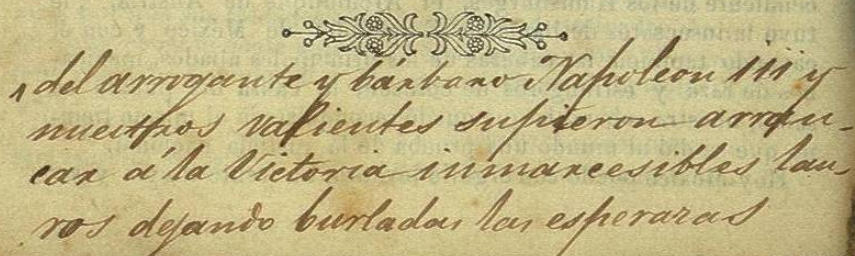 del arrogante y bárbaro Napoleon III y
nuestros valientes supieron arran-
car á la Victoria inmarcesibles lau-
ros dejando burladas las esperazas